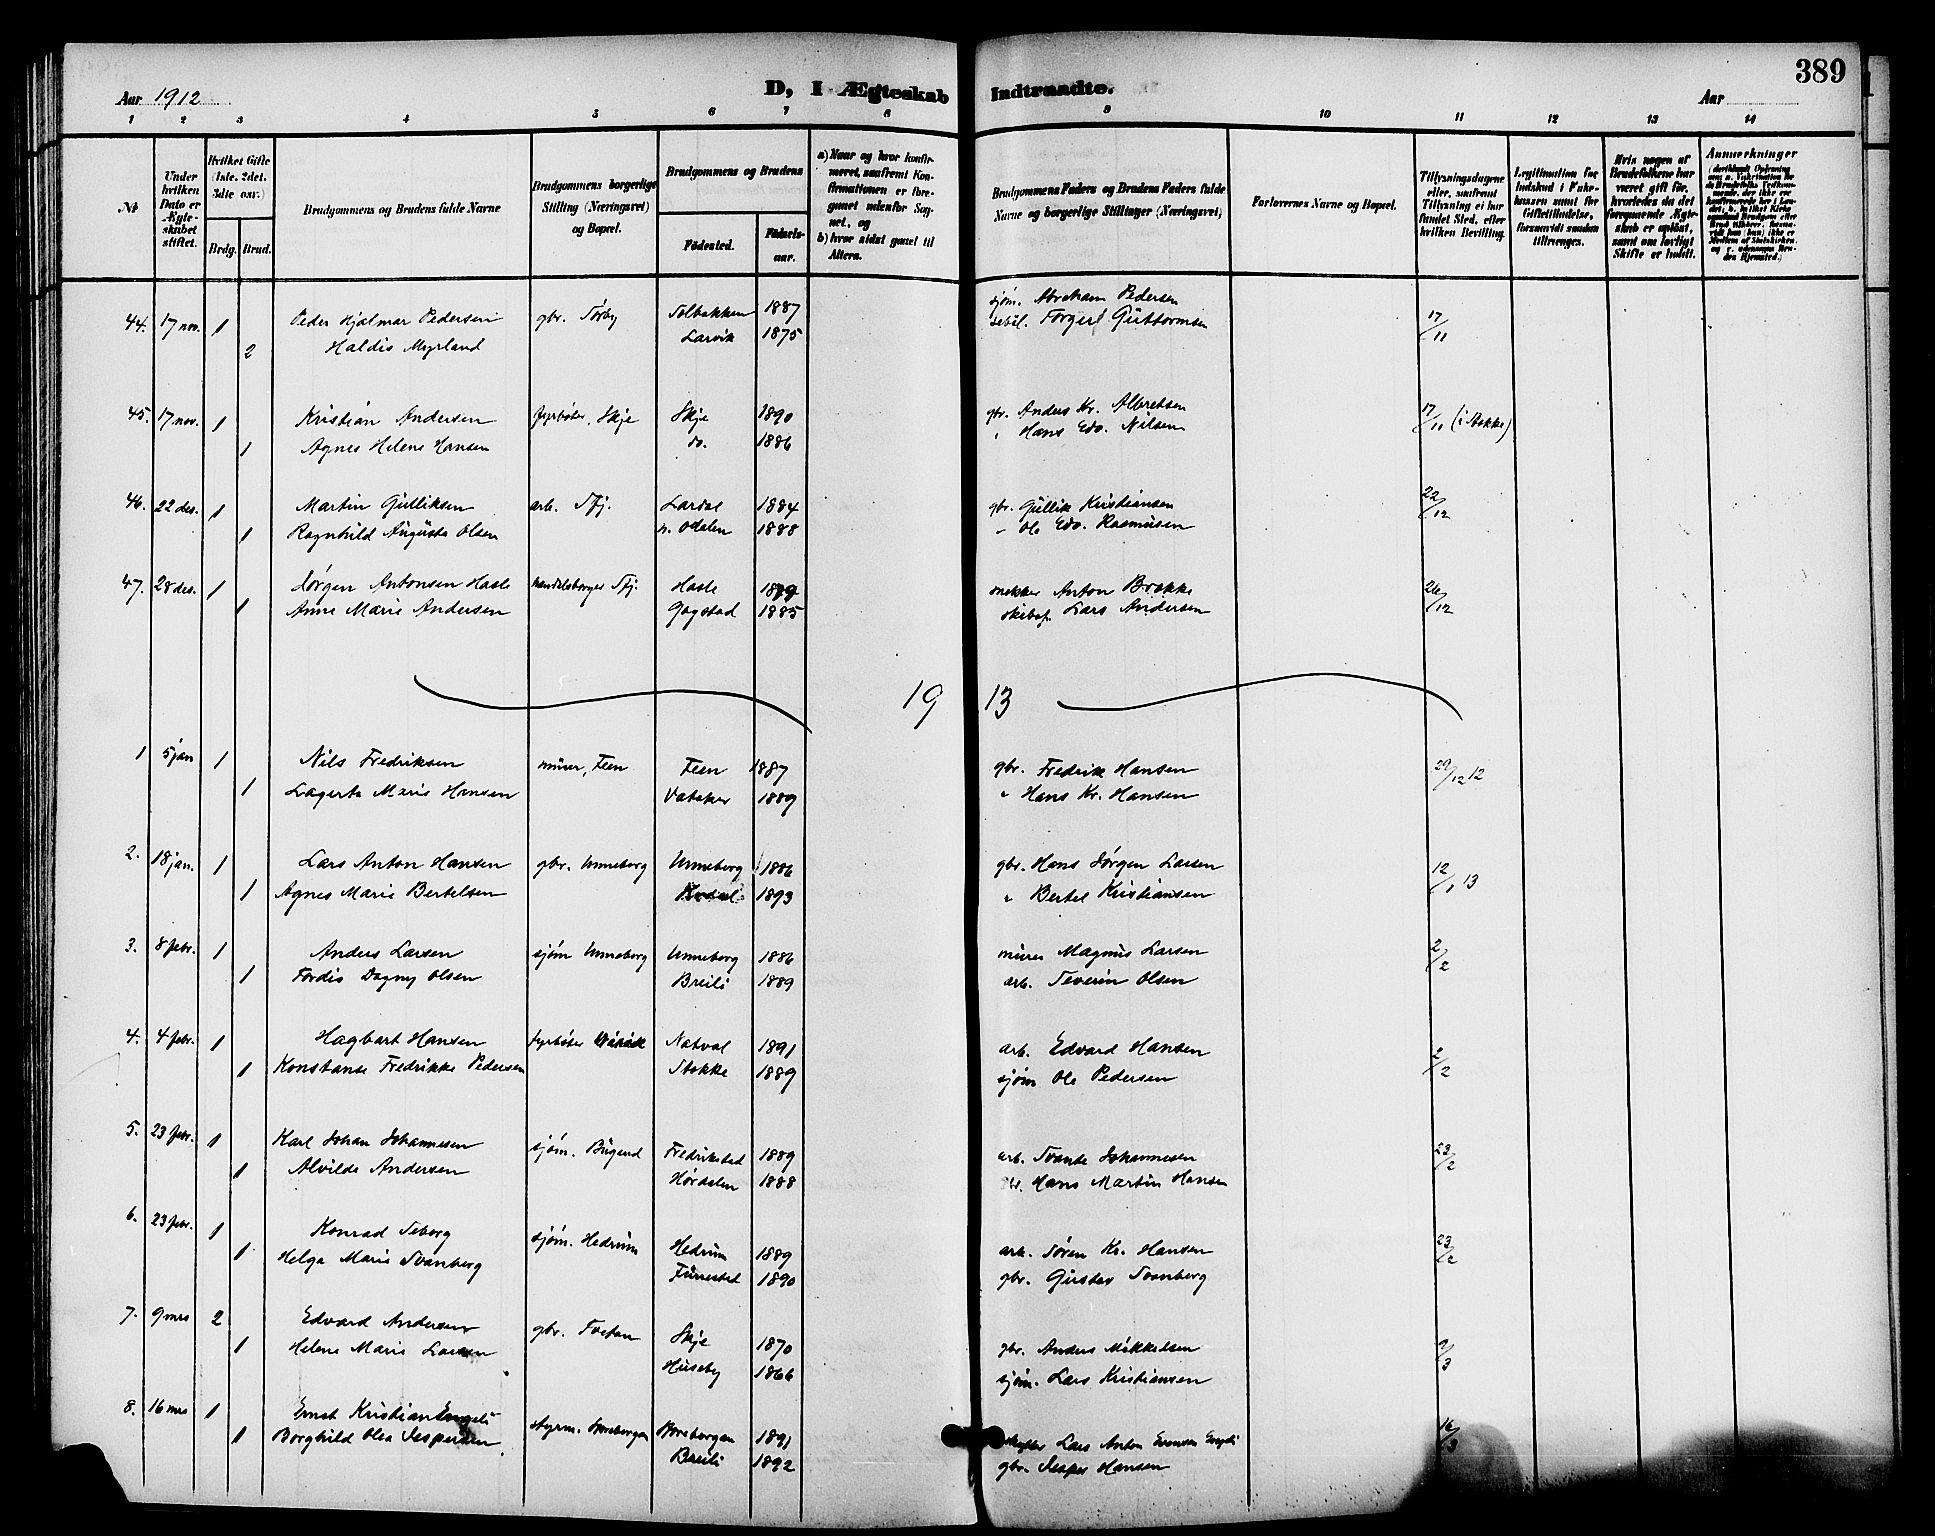 389
Aar 1912
D, I Ægteskab Indtraadte.
Aar
1 2 3 4 5 6 7 8 9 10 11 12 13 14
№
Under hvilken Dato er Ægteskabet stiftet.
Hvilket Gifte (1ste, 2det, 3die osv.)
Brdg. Brud.
Brudgommens og Brudens fulde Navne
Brudgommens borgerlige Stilling (Næringsvei) og Bopæl.
Brudgommens og Brudens
Fødested.
Fødselsaar.
a) Naar og hvor konfirmeret, saafremt Konfirmationen er foregaaet udenfor Sognet, og
b) hvor sidst gaaet til Alters.
Brudgommens Faders og Brudens Faders fulde Navne og borgerlige Stillinger (Næringsvei)
Forlovernes Navne og Bopæl.
Tillysningsdagene eller, saafremt Tillysning ei har fundet Sted, efter hvilken Bevilling.
Legitimation for Indskud i Enkekassen samt for Giftetilladelse, forsaavidt saadan tiltrænges.
Hvis nogen af Brudefolkene har været gift før, hvorledes da det foregaaende Ægteskab er opløst, samt om lovligt Skifte er holdt.
Anmærkninger
44. 17 nov. 1 Peder Hjalmar Pedersen gbr. Tørby Solbakken 1887 sjøm. Abraham Pedersen 17/11
2 Haldis Myrland Larvik 1875 Torger Guttormsen
45. 17 nov. 1 Kristian Andersen fyrbøter, Skje Skje 1890 gbr. Anders Kr. Albretsen 17/11 (i Stokke)
1 Agnes Helene Hansen do. 1886 " Hans Edv. Nilsen
46. 22 des. 1 Martin Gulliksen arb. Sfj. Lardal 1884 gbr. Gullik Kristiansen 22/12
1 Ragnhild Augusta Olsen n. Odalen 1888 - Ole Edv. Rasmussen
47. 28 des. 1 Jørgen Antonsen Hasle handelsborger Sfj. Hasle 1879 snekker Anton Brekke 26/12
1 Anne Marie Andersen Gogstad 1885 Lars Andersen
19 13
1 5 jan 1 Nils Fredriksen murer, Feen Feen 1887 gbr. Fredrik Hansen 29/12 12
1 Lagerta Marie Hansen Vataker 1889 " Hans Kr. Hansen
2. 18 jan. 1 Lars Anton Hansen gbr. Unneberg Unneberg 1886 gbr. Hans Jørgen Larsen 12/1 13
1 Agnes Marie Bertelsen Kodal 1893 " Bertel Kristiansen
3. 8 febr. 1 Anders Larsen sjøm Unneberg Unneberg 1886 murer Magnus Larsen 2/2
1 Tordis Dagny Olsen Breili 1889 arb. Severin Olsen
4. 4 febr. 1 Hagbart Hansen fyrbøter Natval 1891 arb. Edvard Hansen 2/2
1 Konstanse Fredrikke Pedersen Stokke 1889 sjøm Ole Pedersen
5. 23 febr. 1 Karl Johan Johannesen sjøm. Bugerd Fredrikstad 1889 arb. Svante Johannesen 23/2
1 Alvilde Andersen Hørdalen 1888 gbr. Hans Martin Hansen
6. 23 febr. 1 Konrad Seberg sjøm. Hedrum Hedrum 1889 arb. Søren Kr. Hansen 23/2
1 Helga Marie Svanberg Furrestad 1890 gbr. Gustav Svanberg
7. 9 mrs 2 Edvard Andersen gbr. Tveten Skje 1870 gbr. Anders Mikkelsen 9/3
1 Helene Marie Larsen Huseby 1866 sjøm. Lars Kristiansen
8. 16 mrs 1 Ernst Kristian Engeli styrm. 1891 Lars Anton Evensen Engeli 16/3
1 Borghild Olea Jespersen Breili 1892 gbr. Jesper Hansen